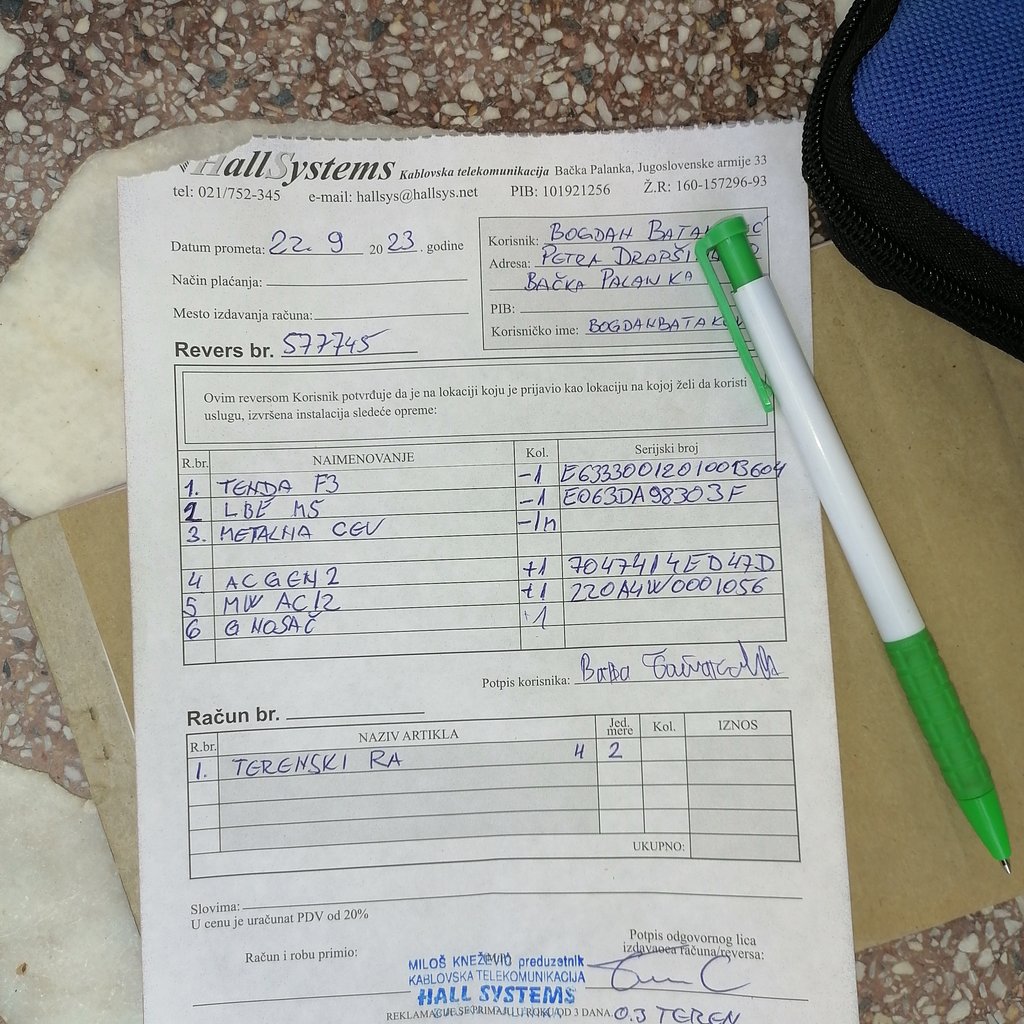 HallSystems Kablovska telekomunikacija Bačka Palanka, Jugoslovenske armije 33
tel: 021/752-345 e-mail: hallsys@hallsys.net PIB: 101921256 Ž.R: 160-157296-93
Datum prometa: 22. 9 2023. godine
Način plaćanja:
Mesto izdavanja računa:
Revers br. 577745
Korisnik: BOGDAN
Adresa: PETRA
BAČKA PALANKA
PIB:
Korisničko ime:
Ovim reversom Korisnik potvrđuje da je na lokaciji koju je prijavio kao lokaciju na kojoj želi da koristi
uslugu, izvršena instalacija sledeće opreme:
R.br. NAIMENOVANJE Kol. Serijski broj
1. TENDA F3 -1 E6333001201001B604
2 LBE M5 -1 E063DA98303F
3. METALNA CEV -1n
4 AC GEN 2 +1 7047414ED47D
5 MW AC/2 +1 220A4W0001056
6 G NOSAČ +1
Potpis korisnika:
Račun br.
R.br. NAZIV ARTIKLA Jed. mere Kol. IZNOS
1. TERENSKI RA 4 2
UKUPNO:
Slovima:
U cenu je uračunat PDV od 20%
Račun i robu primio:
Potpis odgovornog lica
izdavaoca računa/reversa:
MILOŠ KNEŽEVIĆ preduzetnik
KABLOVSKA TELEKOMUNIKACIJA
HALL SYSTEMS
REKLAMACIJE SE PRIMAJU U ROKU OD 3 DANA.
0.3 TEREN